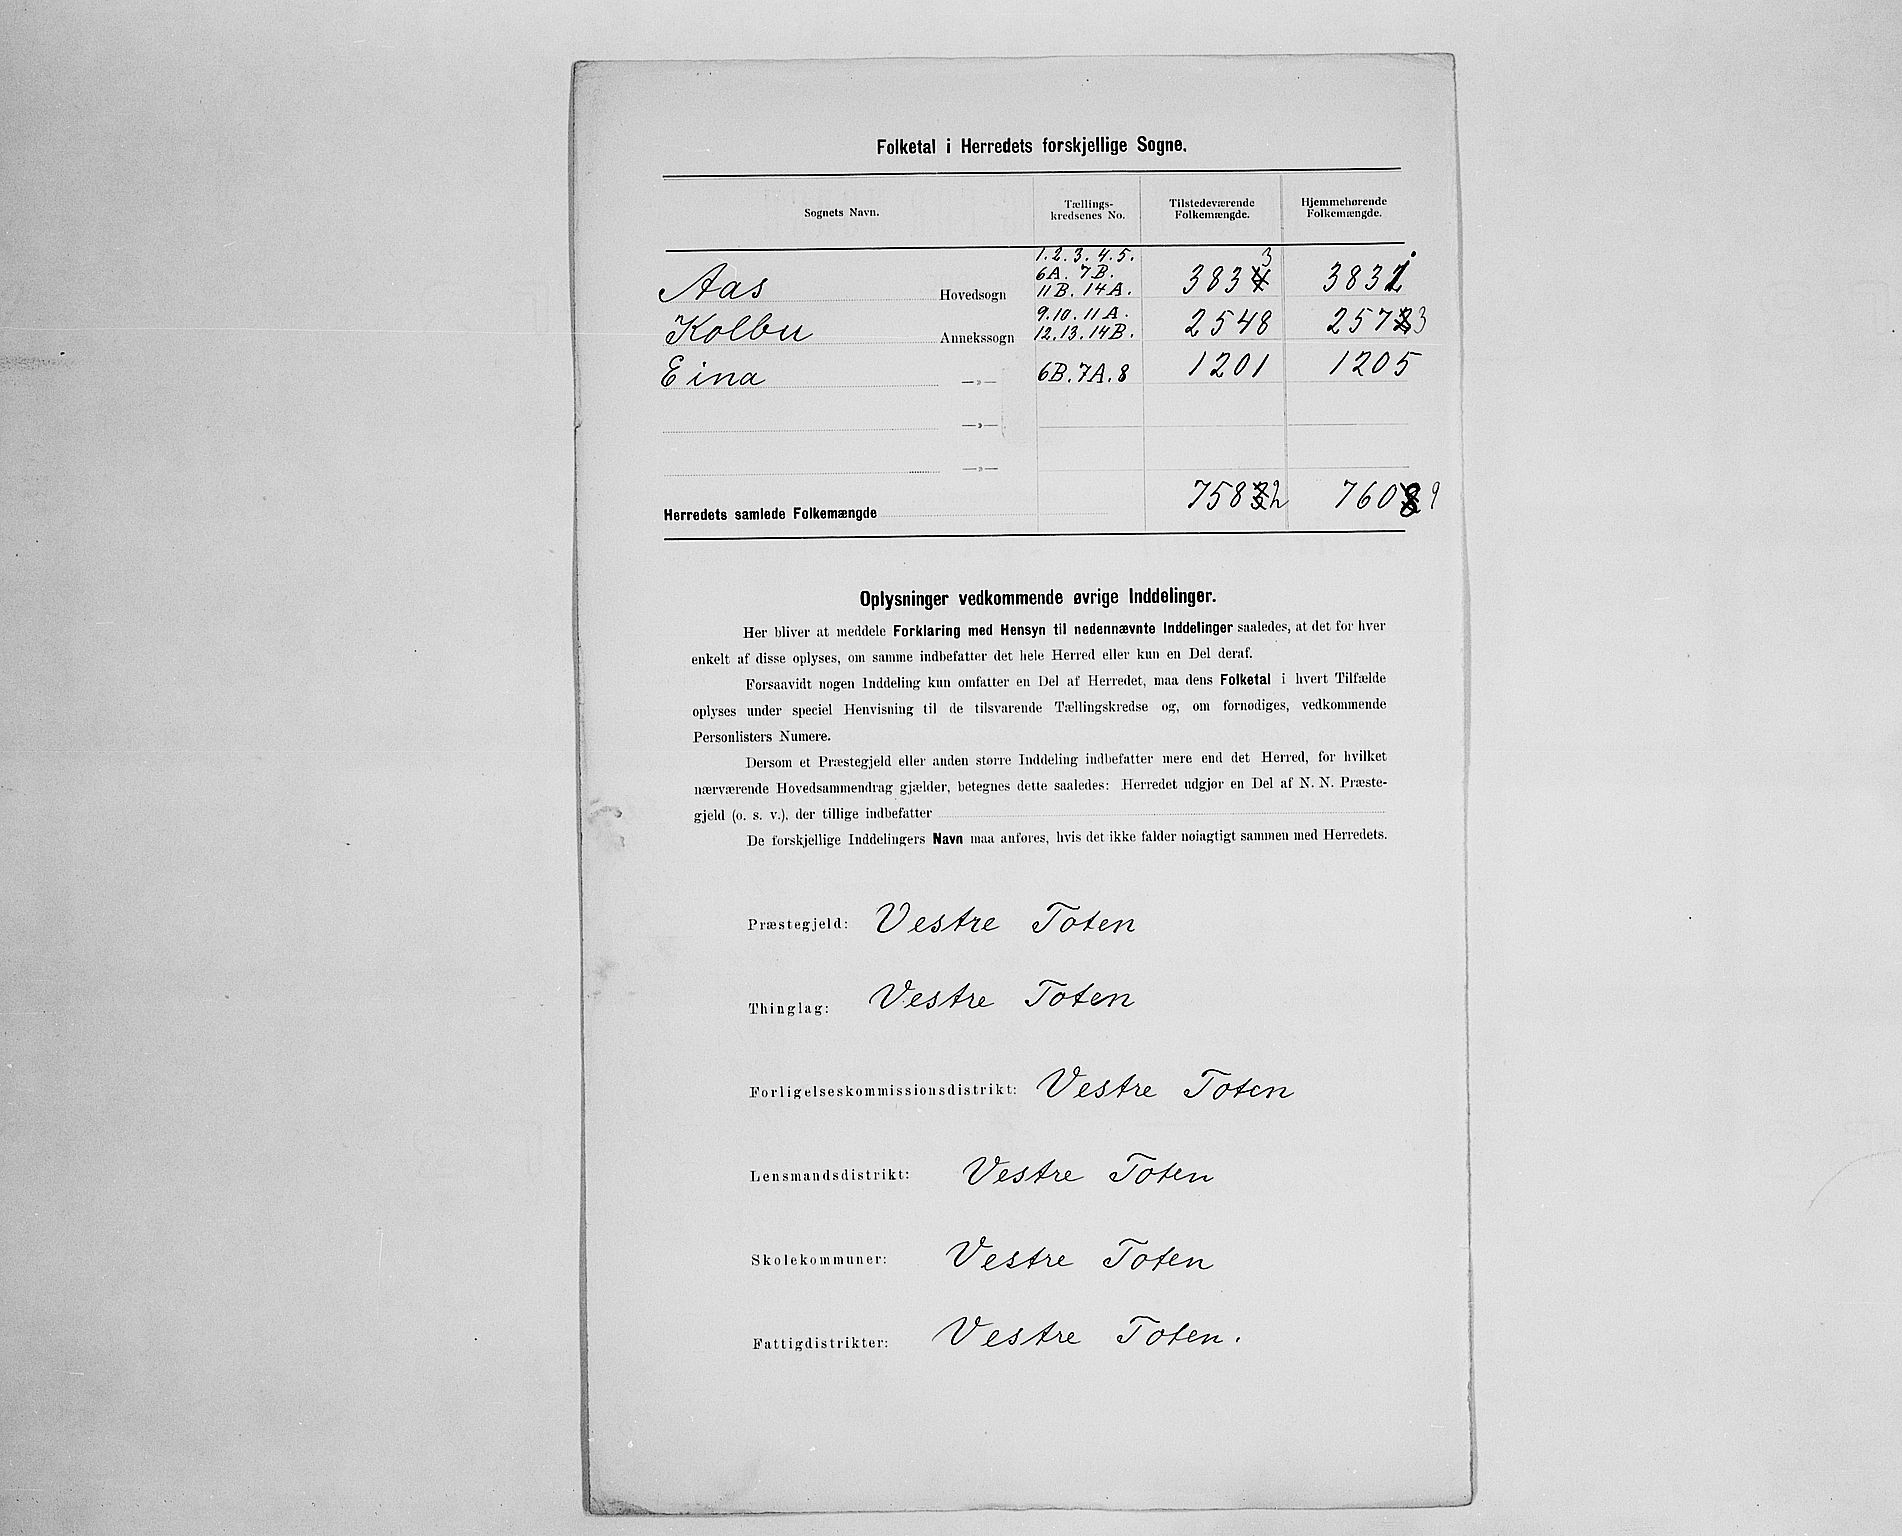 Folketal i Herredets forskjellige Sogne.
Sognets Navn. Tællings-kredsenes No. Tilstedeværende Folkemængde. Hjemmehørende Folkemængde.
1. 2. 3. 4. 5.
6A. 7B.
Aas Hovedsogn 11B. 14A. 3833 3831
9. 10. 11A.
Kolbu Annekssogn 12. 13. 14B. 2548 2573
Eina —»— 6B. 7A. 8 1201 1205
—»—
—»—
Herredets samlede Folkemængde 7582 7609
Oplysninger vedkommende øvrige Inddelinger.
Her bliver at meddele Forklaring med Hensyn til nedennævnte Inddelinger saaledes, at det for hver
enkelt af disse oplyses, om samme indbefatter det hele Herred eller kun en Del deraf.
Forsaavidt nogen Inddeling kun omfatter en Del af Herredet, maa dens Folketal i hvert Tilfælde
oplyses under speciel Henvisning til de tilsvarende Tællingskredse og, om fornødiges, vedkommende
Personlisters Numere.
Dersom et Præstegjeld eller anden større Inddeling indbefatter mere end det Herred, for hvilket
nærværende Hovedsammendrag gjælder, betegnes dette saaledes: Herredet udgjør en Del af N. N. Præste-
gjeld (o. s. v.), der tillige indbefatter
De forskjellige Inddelingers Navn maa anføres, hvis det ikke falder nøiagtigt sammen med Herredets.
Præstegjeld: Vestre Toten
Thinglag: Vestre Toten
Forligelseskommissionsdistrikt: Vestre Toten
Lensmandsdistrikt: Vestre Toten
Skolekommuner: Vestre Toten
Fattigdistrikter: Vestre Toten.